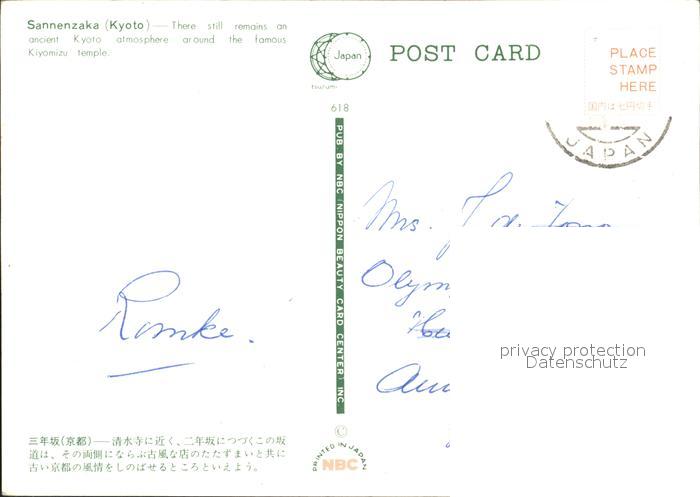 Sannenzaka (Kyoto) — There still remains an
ancient Kyoto atmosphere around the famous
Kiyomizu temple.
Japan
tsurumi
618
POST CARD
PLACE
STAMP
HERE
国内は七円切手
JAPAN
PUB. BY NBC (NIPPON BEAUTY CARD CENTER) INC.
Mrs.
Olym
Romke.
privacy protection
Datenschutz
三年坂(京都)——清水寺に近く、二年坂につづくこの坂
道は、その両側にならぶ古風な店のたたずまいと共に
古い京都の風情をしのばせるところといえよう。
©
PRINTED IN JAPAN
NBC